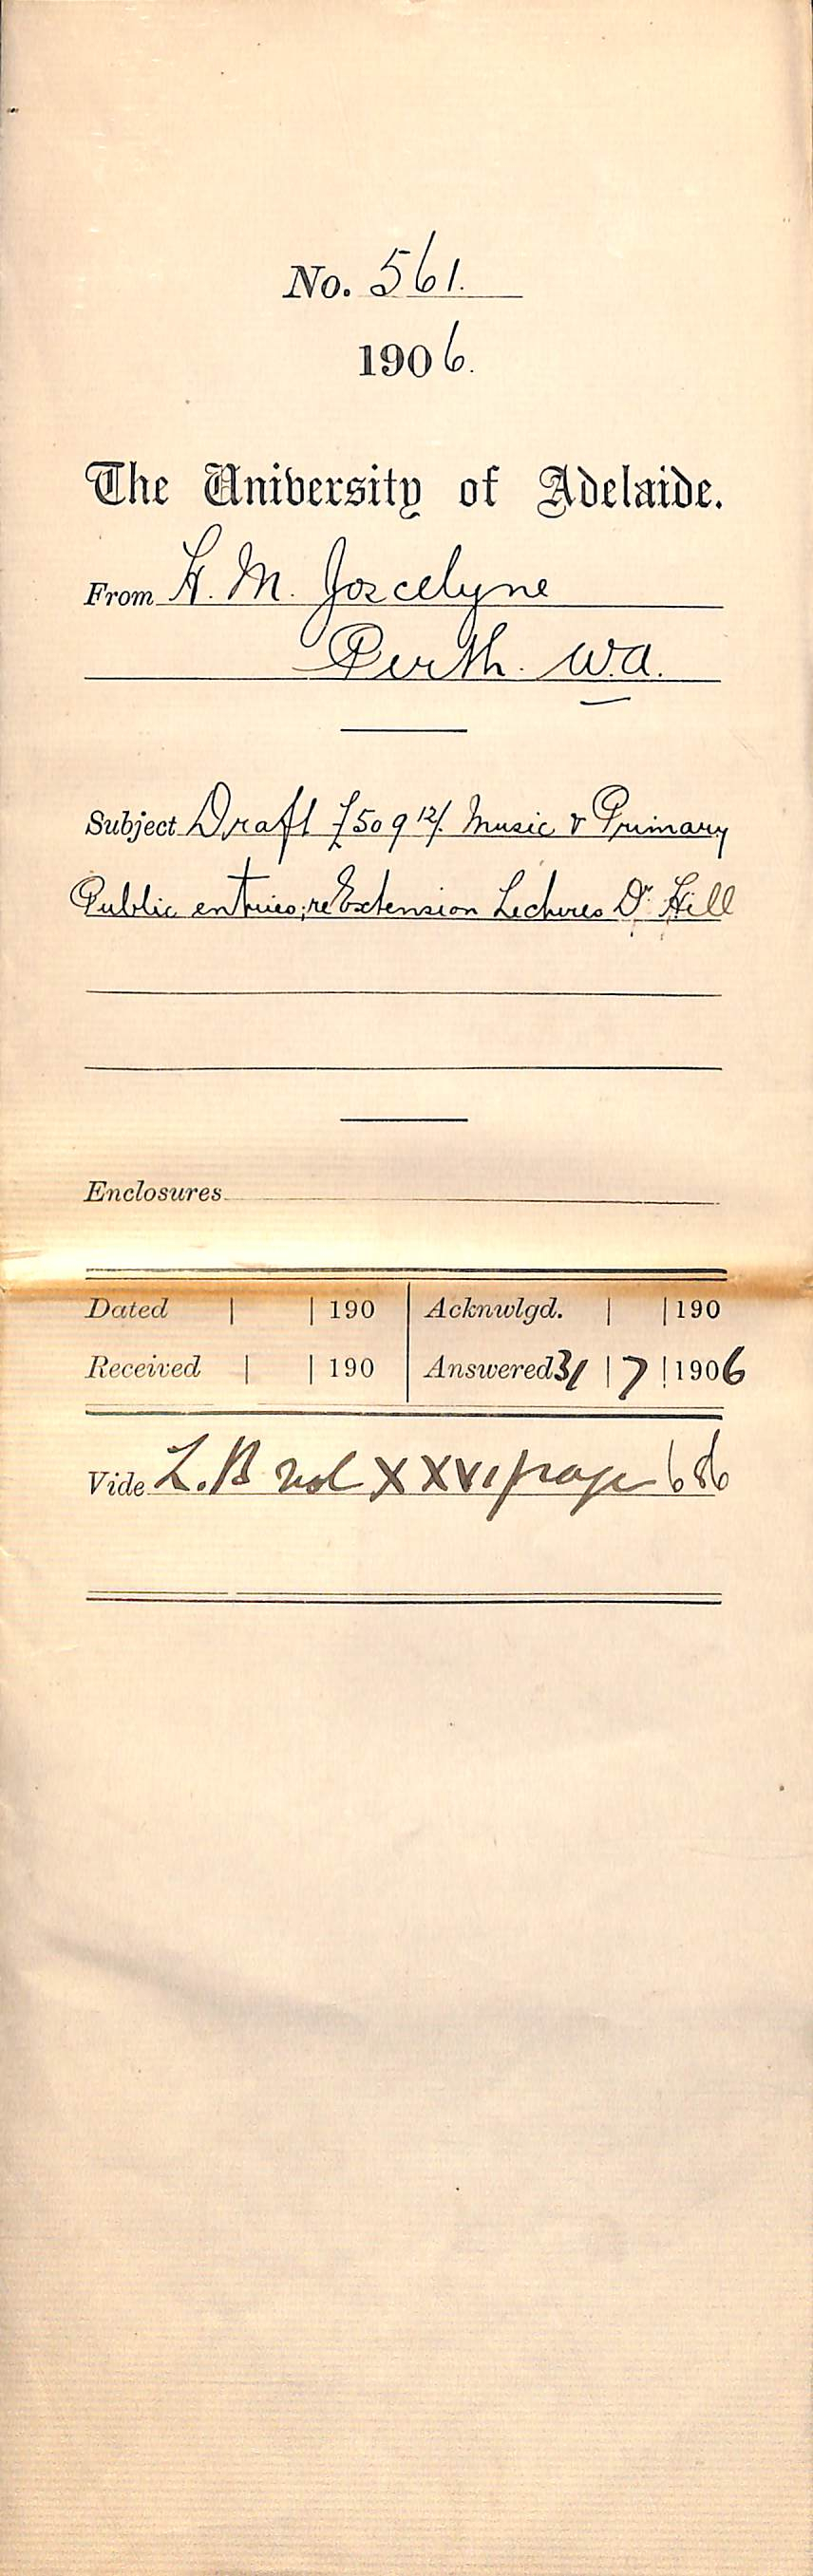 No. 561.
1906.
The University of Adelaide.
From H. M. Joscelyne
Perth. W.A.
Subject Draft £509 12/. Music & Primary
Public entries; re Extension Lectures Dr Hill
Enclosures
Dated | | 190 Acknwlgd. | | 190
Received | | 190 Answered 31 | 7 | 1906
Vide L.B vol XXVI page 686